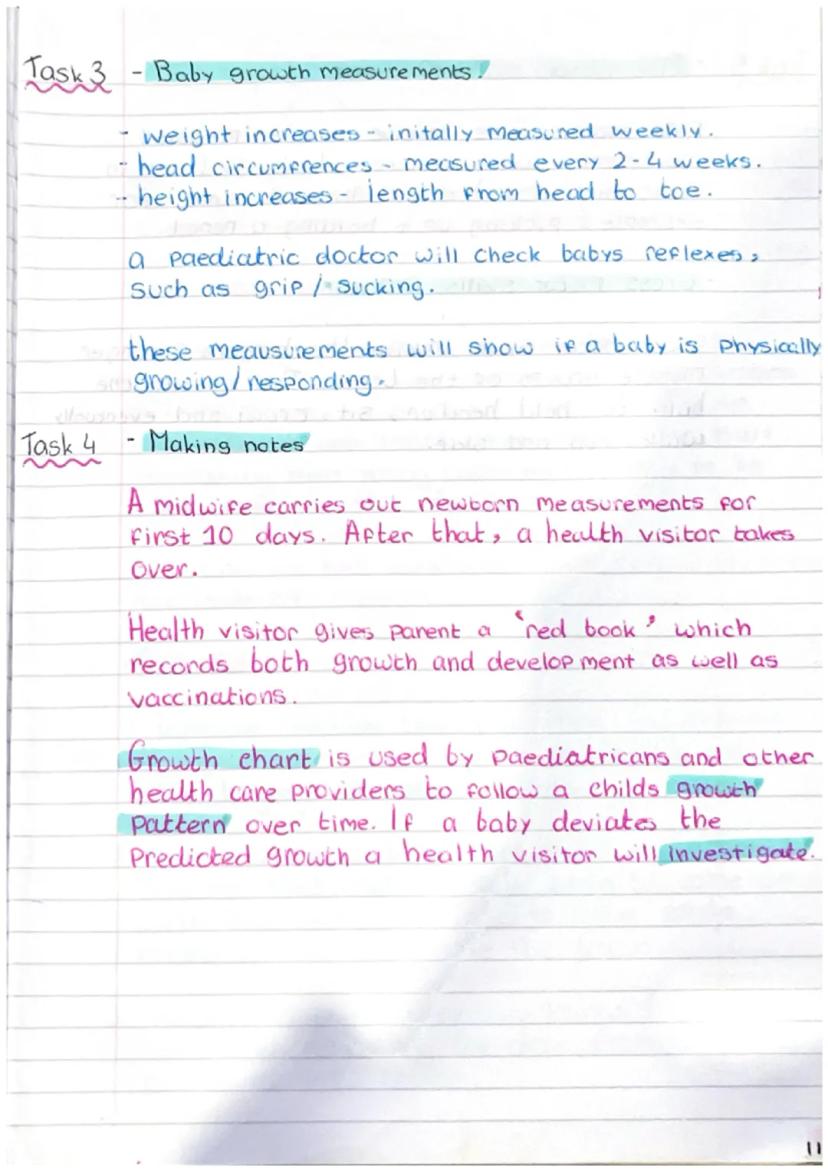 Task 3 - Baby growth measurements!
- weight increases - initally measured weekly.
- head circumfrences - measured every 2-4 weeks.
- height increases - length from head to toe.
a paediatric doctor will check babys reflexes,
such as grip / sucking.
these meausurements will show if a baby is physically
growing/responding.
Task 4 - Making notes
A midwife carries out newborn measurements for
first 10 days. After that, a health visitor takes
over.
Health visitor gives parent a 'red book' which
records both growth and development as well as
vaccinations.
Growth chart is used by paediatricans and other
health care providers to follow a childs growth
pattern over time. If a baby deviates the
predicted growth a health visitor will investigate.
11